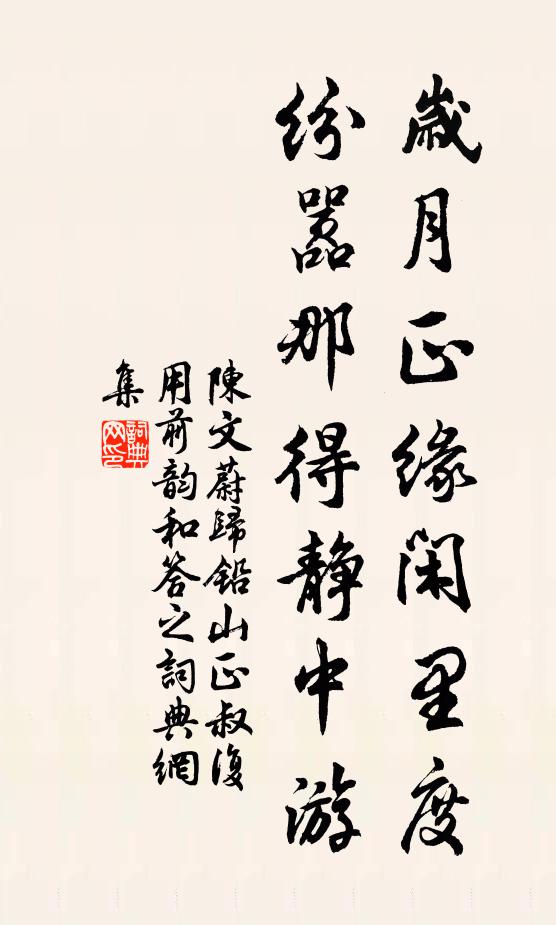 歲月正緣閑里度
紛囂那得靜中游
陳文蔚歸鉛山正叔復
用前韵和答之詞典網
集
詞典
网印